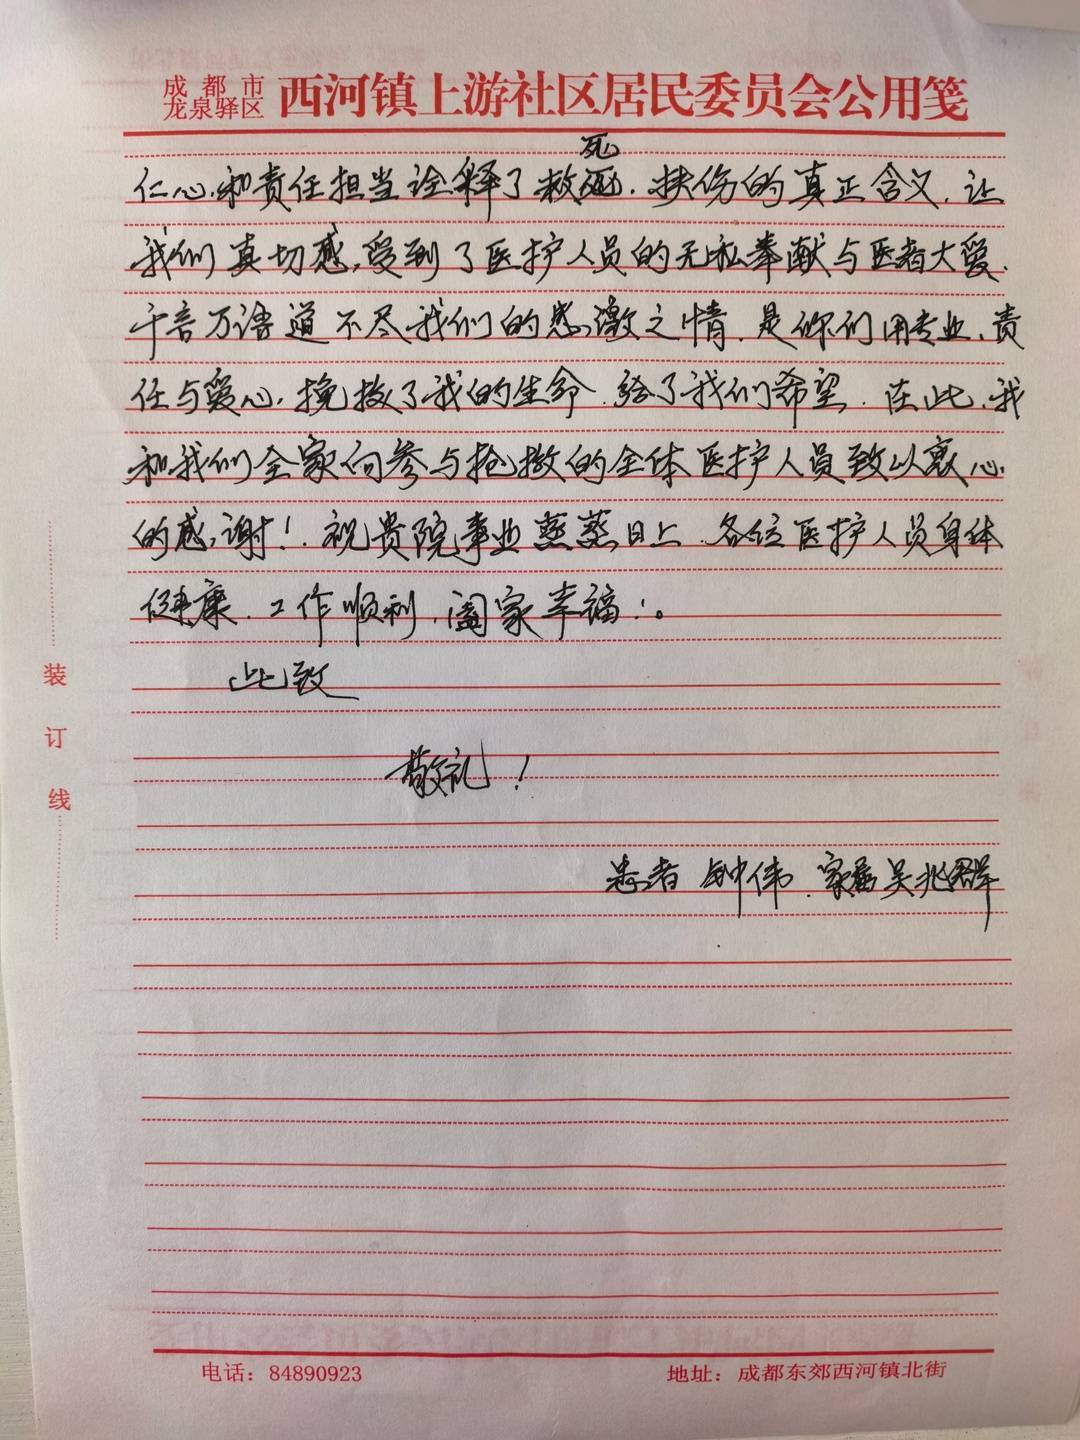 成都市
龙泉驿区 西河镇上游社区居民委员会公用笺
死
仁心和责任担当诠释了救死、扶伤的真正含义,让
我们真切感受到了医护人员的无私奉献与医者大爱.
千言万语道不尽我们的感激之情.是你们用专业、责
任与爱心,挽救了我的生命.给了我们希望.在此,我
和我们全家向参与抢救的全体医护人员致以衷心
的感谢!祝贵院事业蒸蒸日上.各位医护人员身体
健康.工作顺利,阖家幸福!。
此致
敬礼!
患者 钟伟.家属吴兆群
装订线
电话：84890923
地址：成都东郊西河镇北街